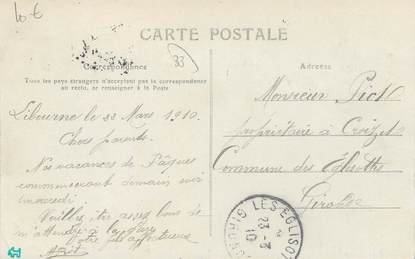 10 €
CARTE POSTALE
33
Correspondance
Tous les pays étrangers n'acceptent pas la correspondance
au recto, se renseigner à la Poste
Libourne le 22 Mars 1910.
Chers parents.
Nos vacances de Pâques
commencent demain soir
mercredi.
Veuillez être assez bons de
m'attendre à la gare
Votre fils affectueux
Adresse
Monsieur Piot
propriétaire à
Commune des Églisottes
Gironde
LES EGLISOTTES
23 -3
10
GIRONDE